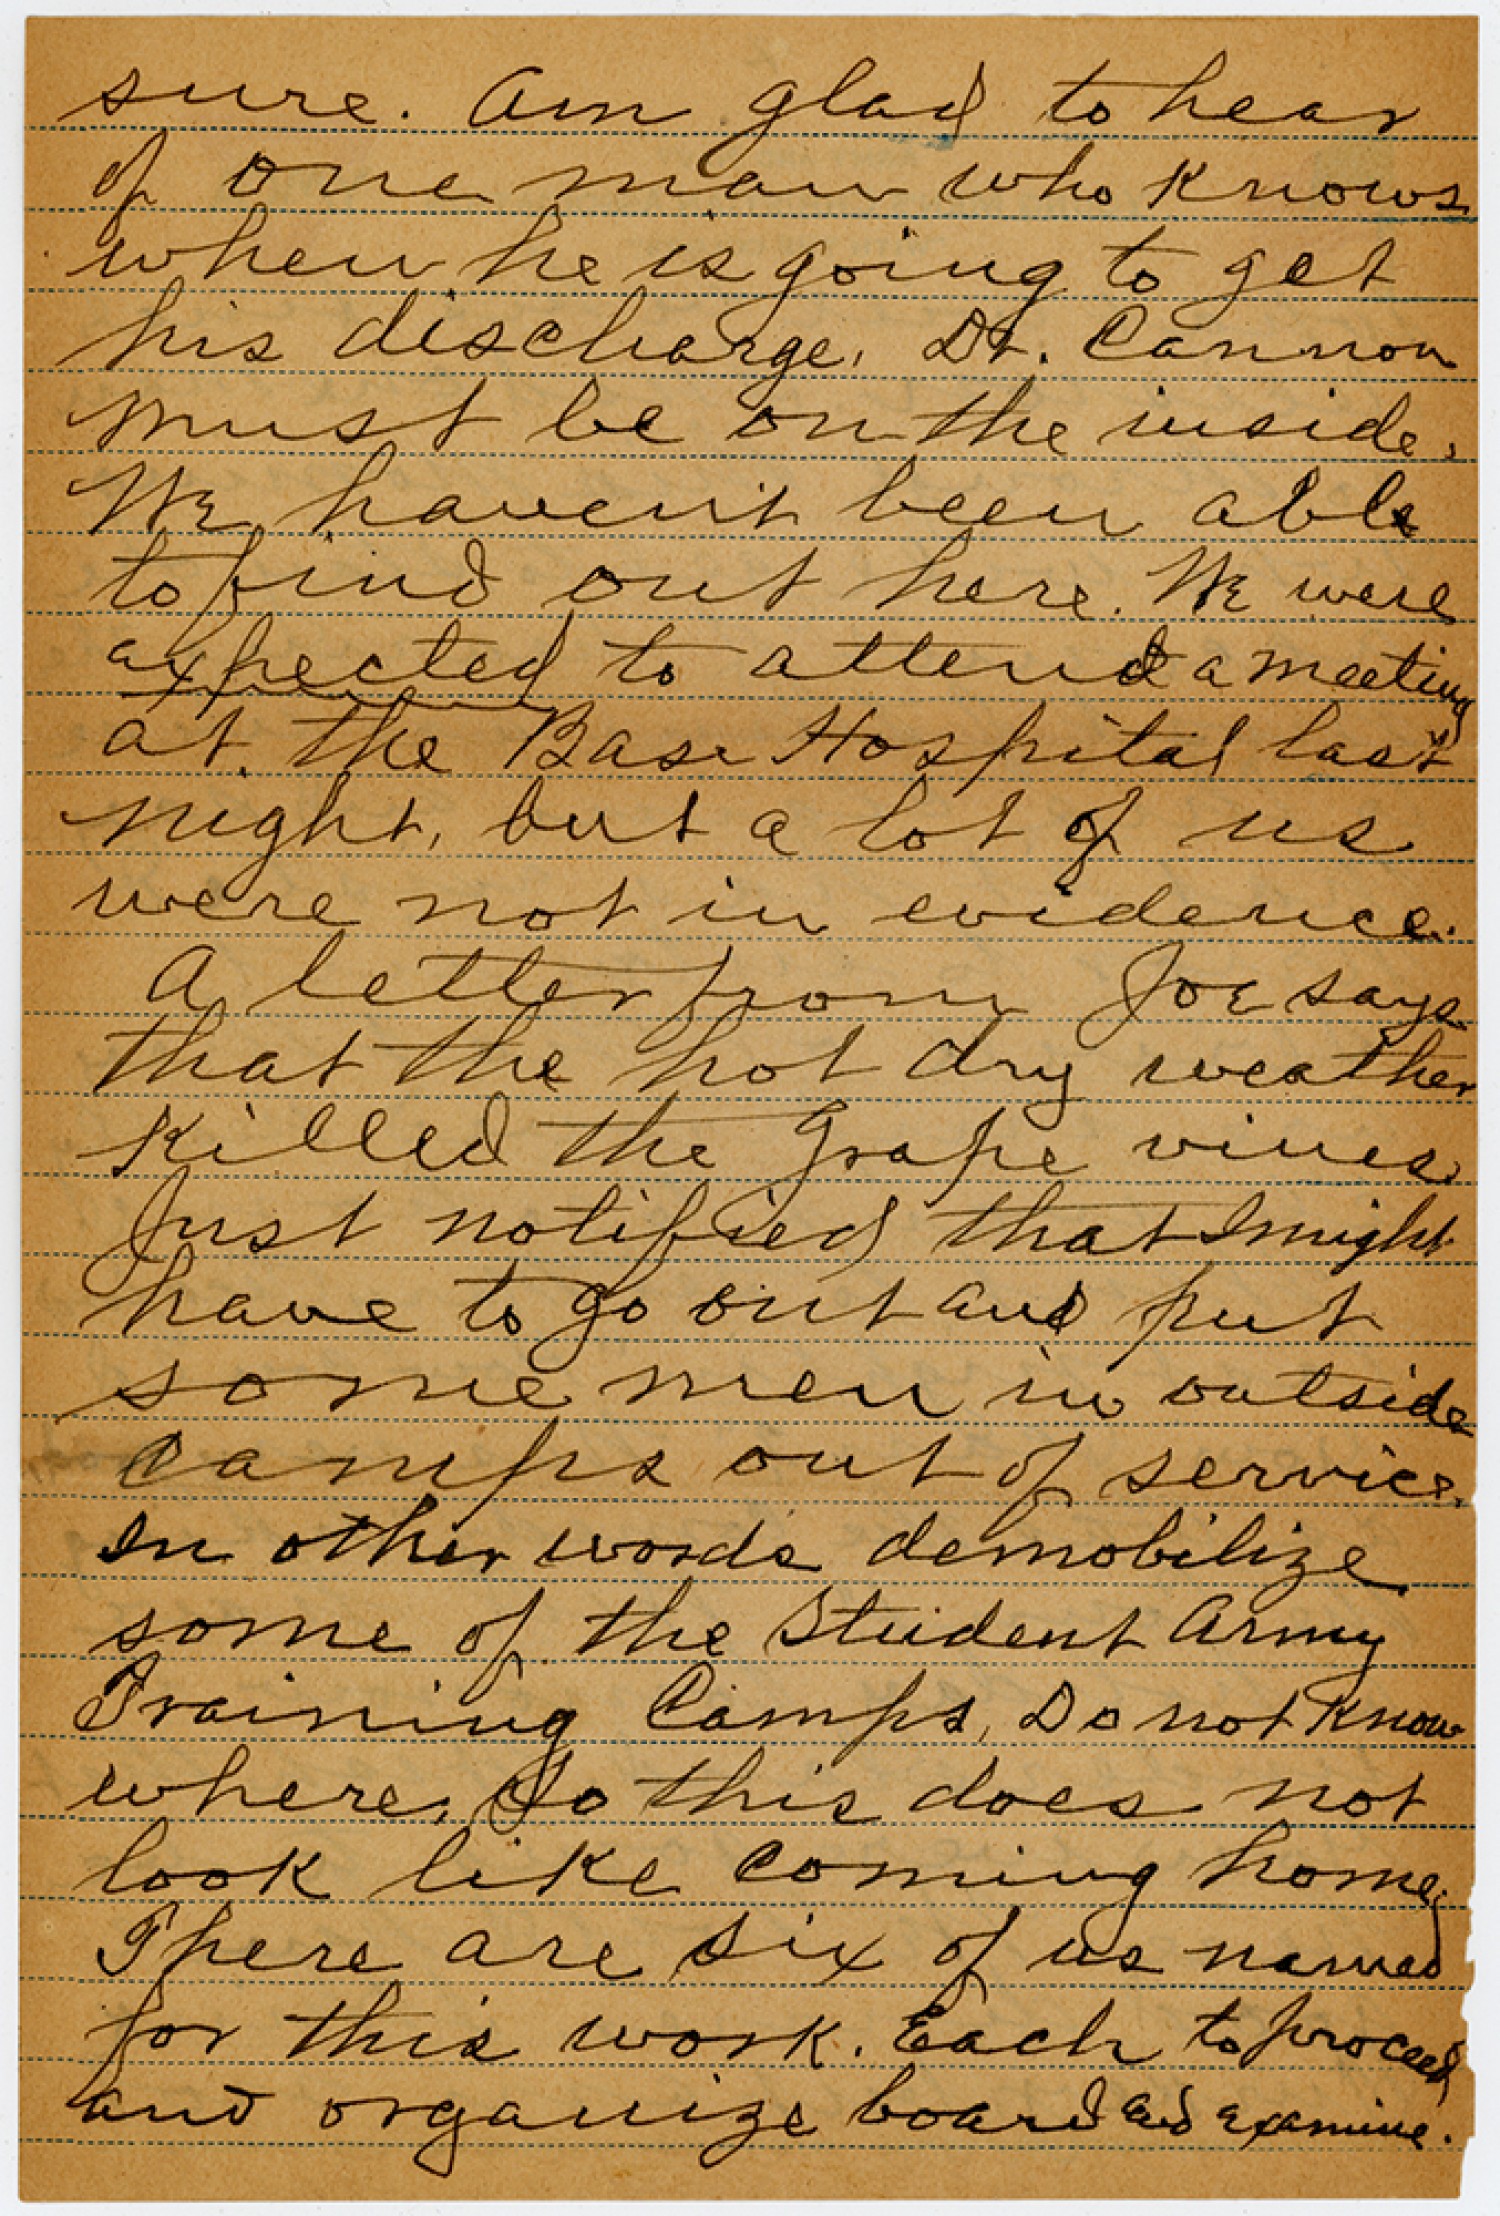 sure. Am glad to hear
of one man who knows
when he is going to get
his discharge. Dr. Cannon
must be on the inside.
We haven't been able
to find out here. We were
expected to attend a meeting
at the Base Hospital last
night, but a lot of us
were not in evidence.
A letter from Joe says
that the hot dry weather
killed the Grape vines.
Just notified that I might
have to go out and put
some men in outside
camps out of service.
In other words demobilize
some of the Student Army
Training Camps. Do not know
where. So this does not
look like coming home,
There are six of us named
for this work. Each to proceed
and organize board and examine.